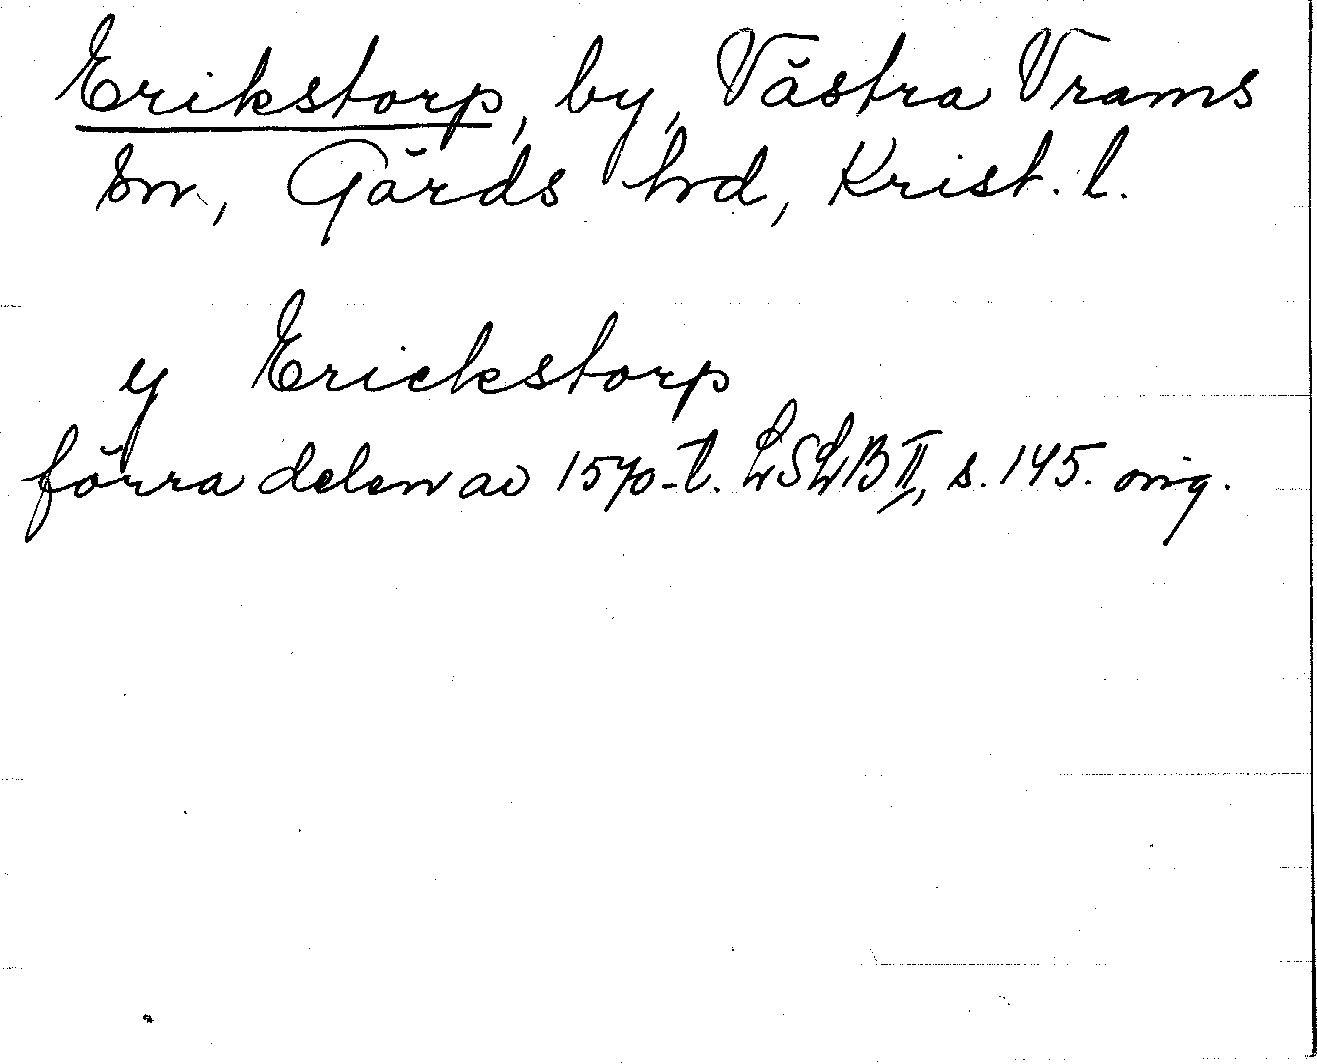 Erikstorp, by, Västra Vrams
sn, Gärds hd, Krist. l.
y Erickstorp
förra delen av 1570-t. LSLB II, s. 145. orig.